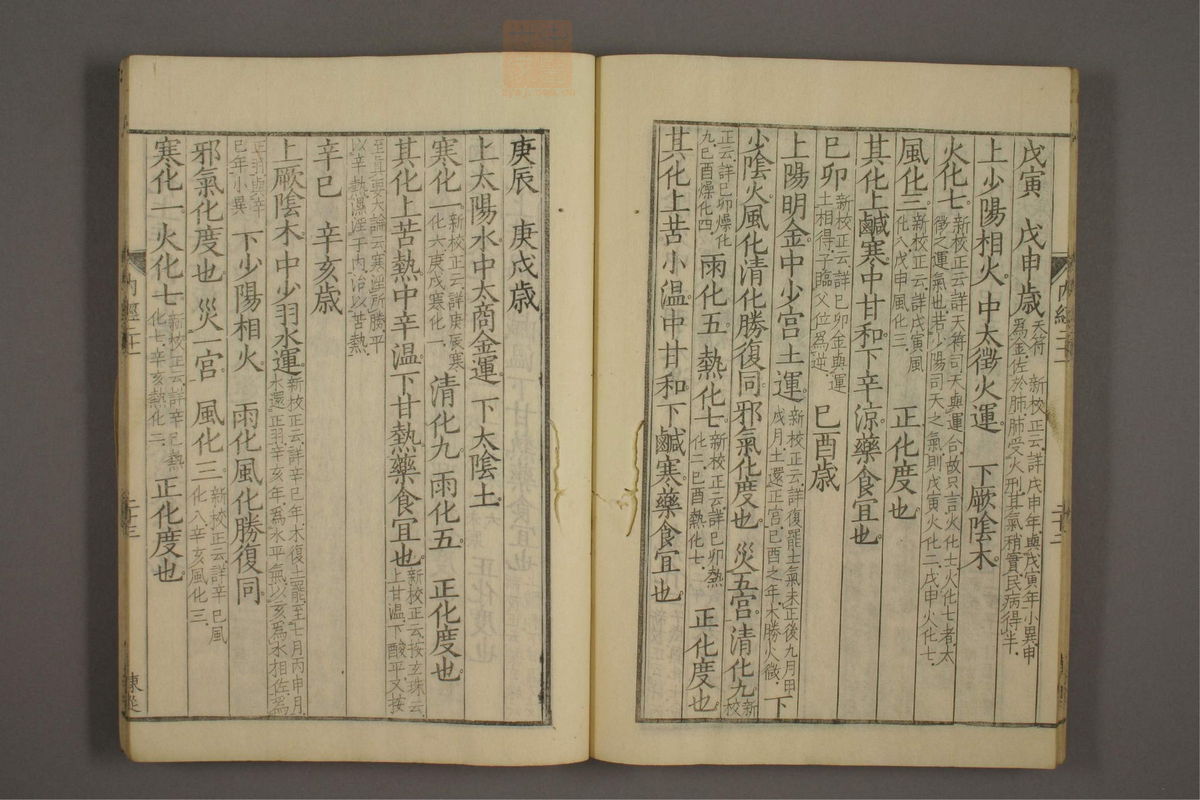 戊寅　戊申歲天符　新校正云詳戊申年與戊寅年小異申爲金佐於肺肺受火刑其氣稍實民病得半
上少陽相火　中太徵火運　下厥陰木
火化七新校正云詳天符司天與運合故只言火化七火化七者太徵之運氣也若少陽司天之氣則戊寅火化二戊申火化七
風化三新校正云詳戊寅風化八戊申風化三　正化度也
其化上鹹寒中甘和下辛涼藥食宜也
巳卯新校正云詳巳卯金與運土相得子臨父位爲逆　巳酉歲
上陽明金中少宮土運新校正云詳復罷土氣未正後九月甲戌月土還正宮巳酉之年木勝火微　下
少陰火風化清化勝復同邪氣化度也　災五宮清化九新校
正云詳巳卯燥化九巳酉燥化四　雨化五　熱化七新校正云詳巳卯熱化二巳酉熱化七　正化度也
其化上苦小溫中甘和下鹹寒藥食宜也
庚辰　庚戌歲
上太陽水中太商金運　下太陰土
寒化一新校正云詳庚辰寒化六庚戌寒化一　清化九　雨化五　正化度也
其化上苦熱中辛溫下甘熱藥食宜也新校正云按玄珠云上甘溫下酸平又按
至眞要大論云寒淫所勝平以辛熱濕淫于內治以苦熱
辛巳　辛亥歲
上厥陰木中少羽水運新校正云詳辛巳年木復土罷至七月丙申月水還正羽辛亥年爲水平氣以亥爲水相佐爲
正羽與辛巳年小異　下少陽相火　雨化風化勝復同
邪氣化度也　災一宮　風化三新校正云詳辛巳風化八辛亥風化三
寒化一火化七新校正云詳辛巳熱化七辛亥熱化二　正化度也
內經二十一
二十三